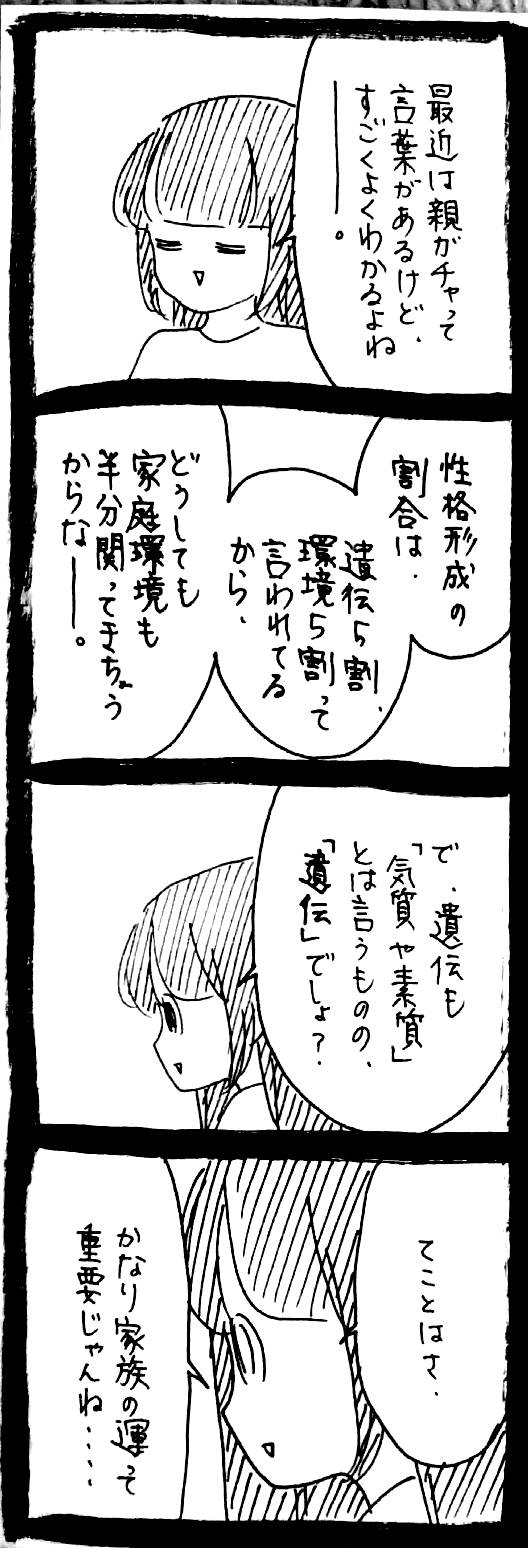 最近は親ガチャって
言葉があるけど、
すごくよくわかるよね
ーーー。
性格形成の
割合は、
遺伝5割、
環境5割って
言われてる
から、
どうしても
家庭環境も
半分関ってきちゃう
からなーー。
で、遺伝も
「気質や素質」
とは言うものの、
「遺伝」でしょ？
てことはさ、
かなり家族の運って
重要じゃんね・・・・